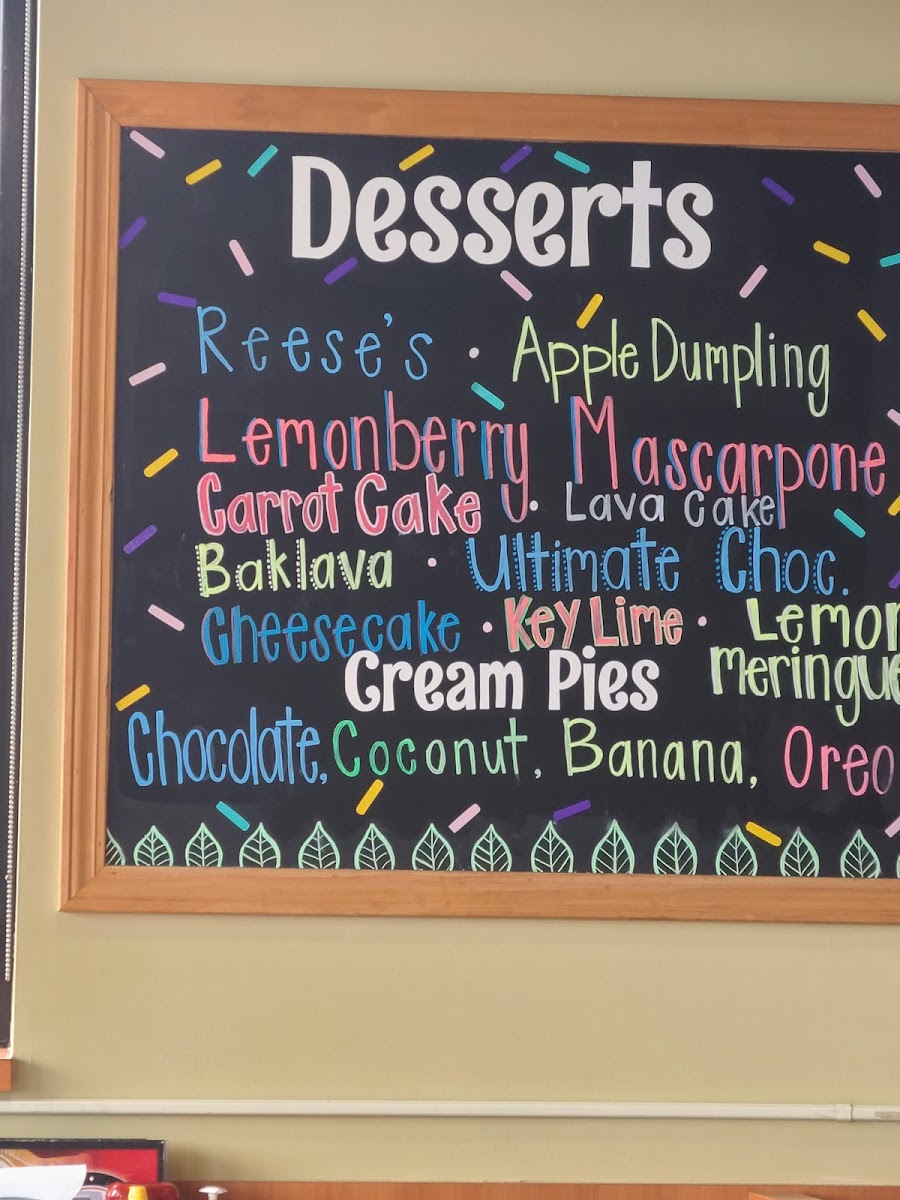 Desserts
Reese's · Apple Dumpling
Lemonberry Mascarpone
Carrot Cake · Lava Cake
Baklava · Ultimate Choc.
Cheesecake · Key Lime · Lemon
Meringue
Cream Pies
Chocolate, Coconut, Banana, Oreo